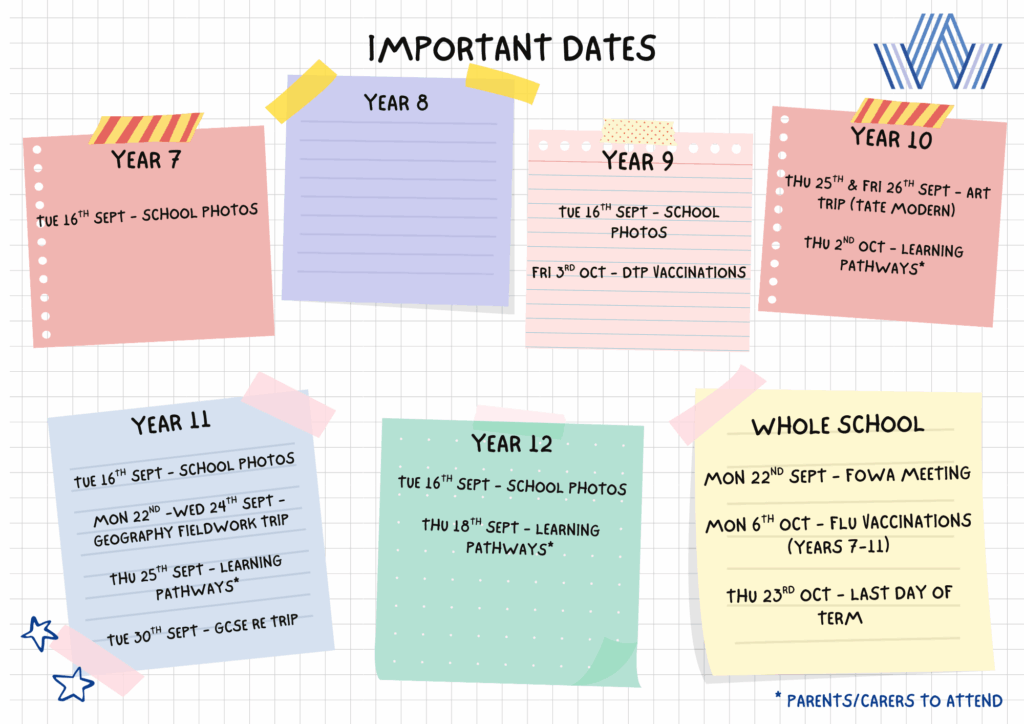 IMPORTANT DATES
YEAR 7
TUE 16TH SEPT - SCHOOL PHOTOS
YEAR 8
YEAR 9
TUE 16TH SEPT - SCHOOL
PHOTOS
FRI 3RD OCT - DTP VACCINATIONS
YEAR 10
THU 25TH & FRI 26TH SEPT - ART
TRIP (TATE MODERN)
THU 2ND OCT - LEARNING
PATHWAYS*
YEAR 11
TUE 16TH SEPT - SCHOOL PHOTOS
MON 22ND -WED 24TH SEPT -
GEOGRAPHY FIELDWORK TRIP
THU 25TH SEPT - LEARNING
PATHWAYS*
TUE 30TH SEPT - GCSE RE TRIP
YEAR 12
TUE 16TH SEPT - SCHOOL PHOTOS
THU 18TH SEPT - LEARNING
PATHWAYS*
WHOLE SCHOOL
MON 22ND SEPT - FOWA MEETING
MON 6TH OCT - FLU VACCINATIONS
(YEARS 7-11)
THU 23RD OCT - LAST DAY OF
TERM
* PARENTS/CARERS TO ATTEND